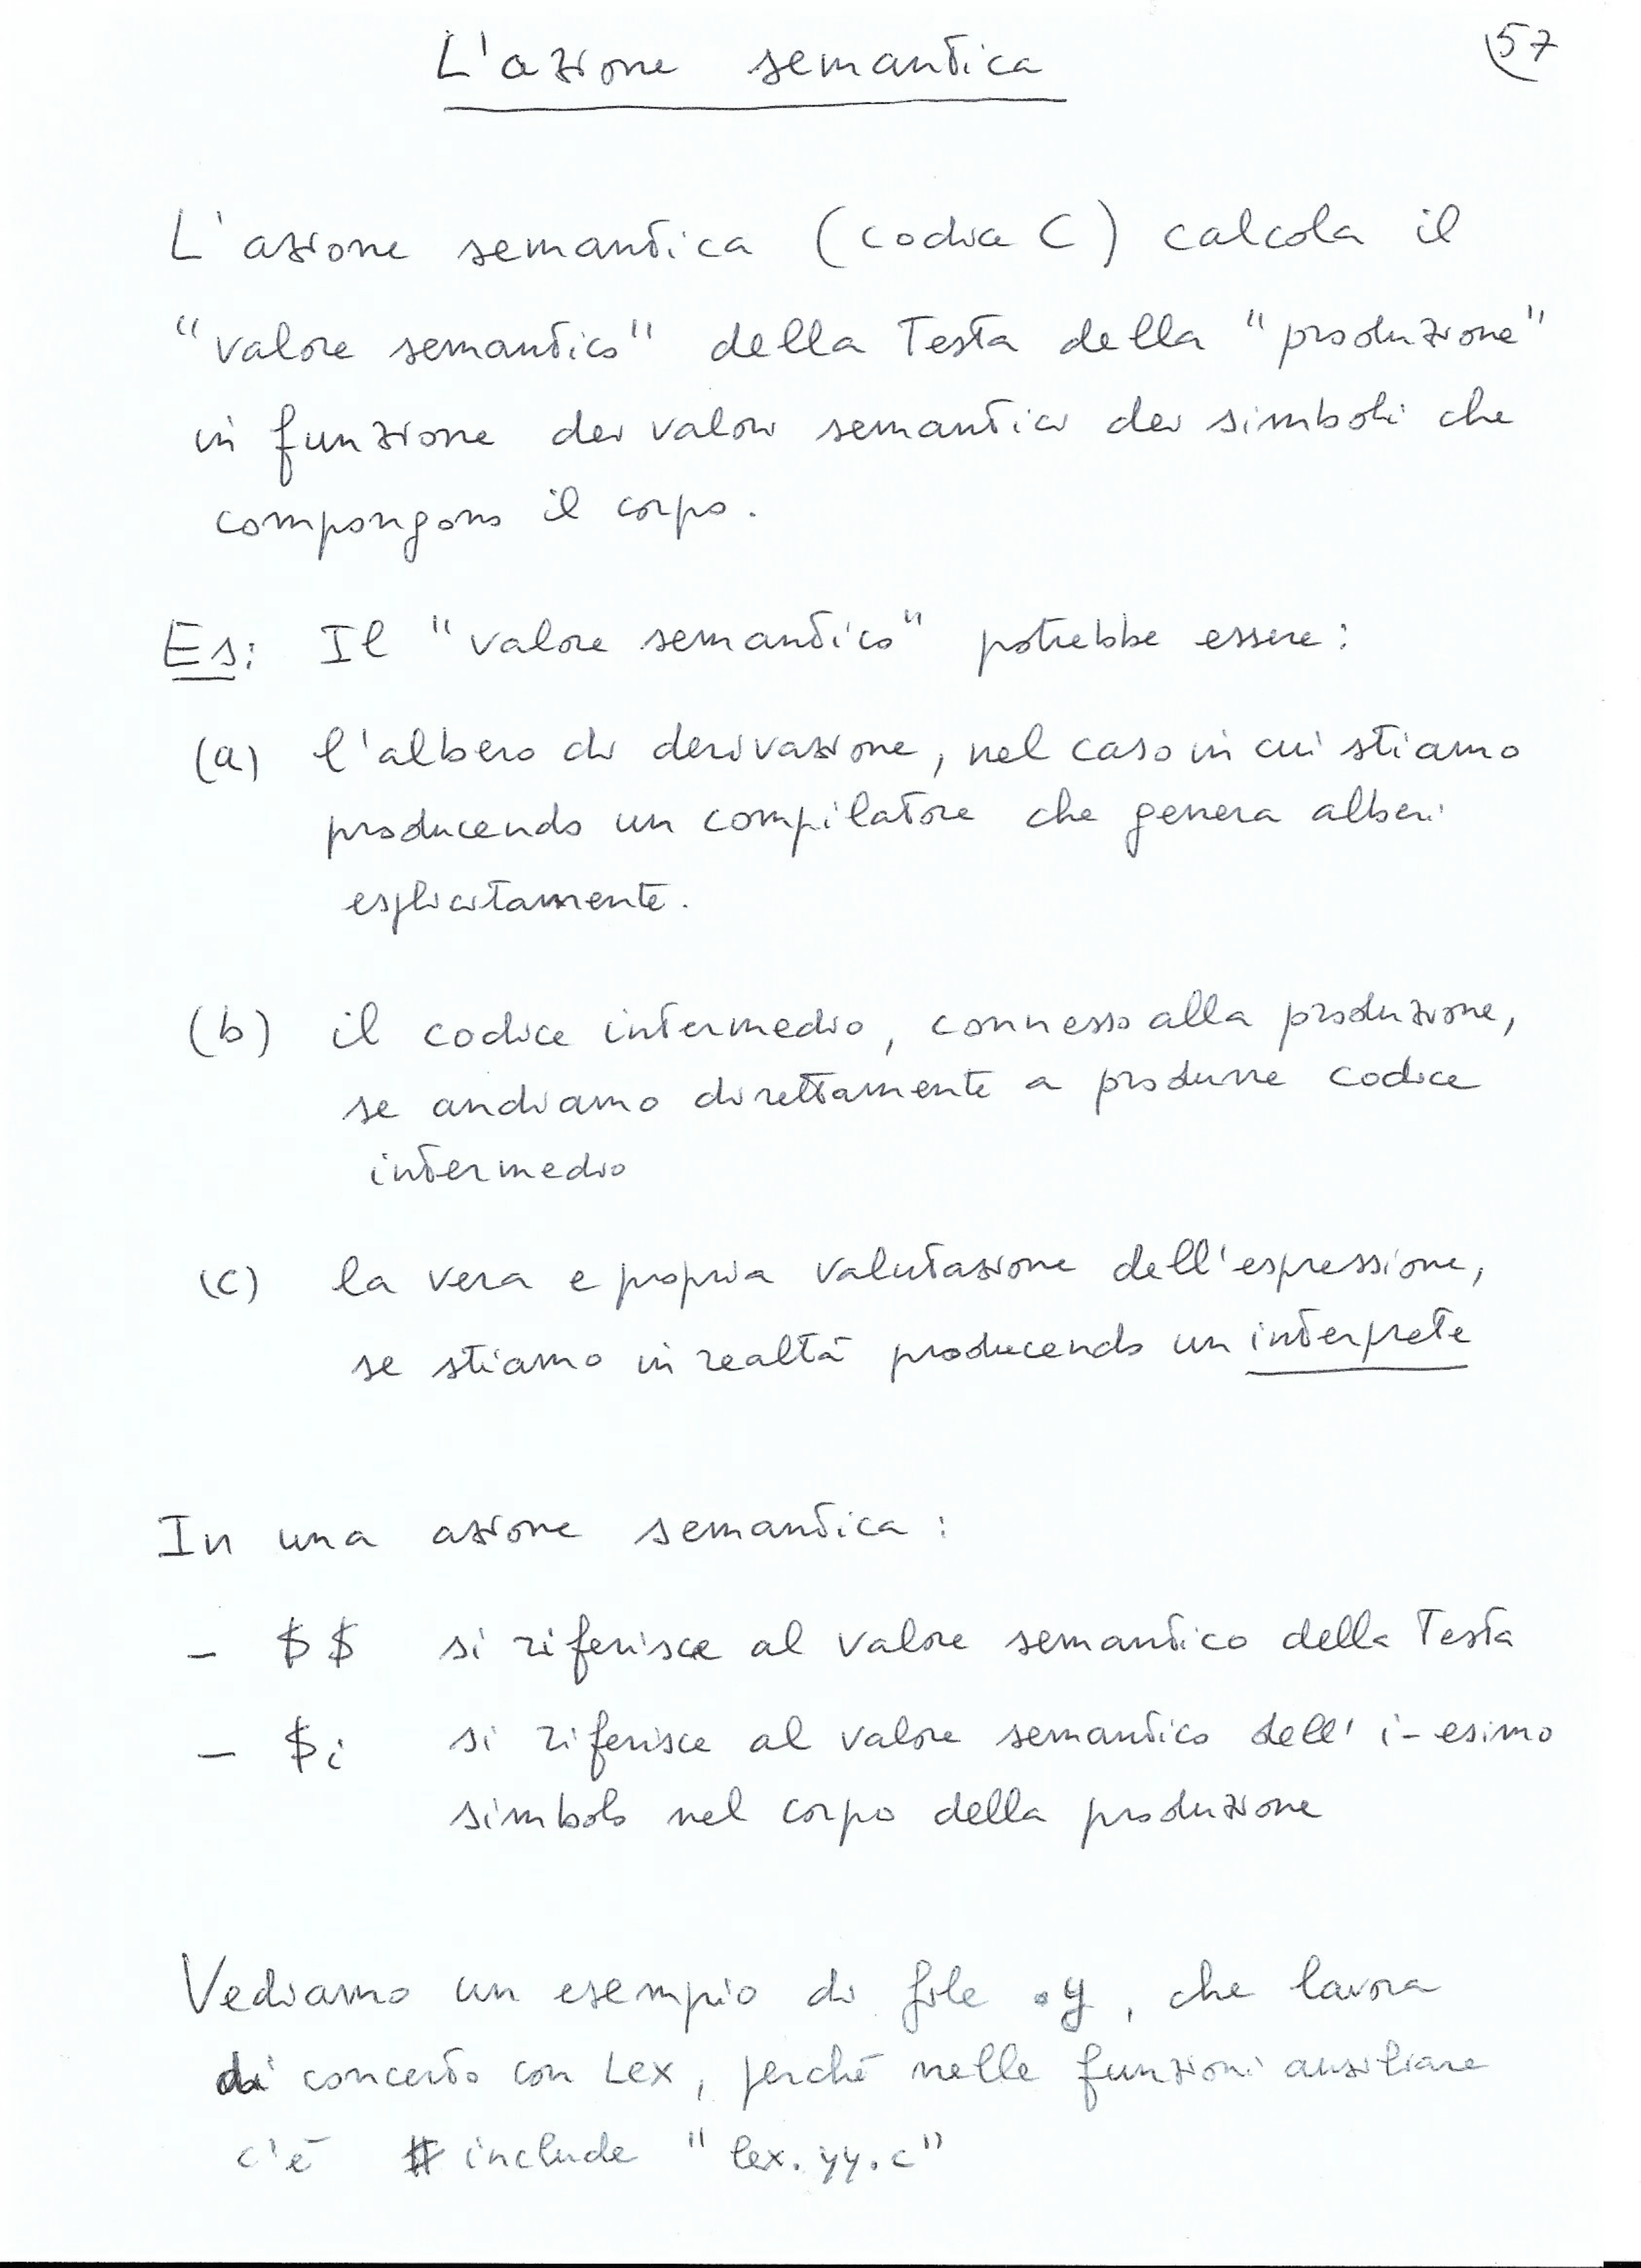 L'azione semantica
57
L'azione semantica (codice C) calcola il
"valore semantico" della Testa della "produzione"
in funzione dei valori semantici dei simboli che
compongono il corpo.
Es: Il "valore semantico" potrebbe essere:
(a) l'albero di derivazione, nel caso in cui stiamo
producendo un compilatore che genera alberi
esplicitamente.
(b) il codice intermedio, connesso alla produzione,
se andiamo direttamente a produrre codice
intermedio
(c) la vera e propria valutazione dell'espressione,
se stiamo in realtà producendo un interprete
In una azione semantica:
- $$ si riferisce al valore semantico della Testa
- $i si riferisce al valore semantico dell' i-esimo
simbolo nel corpo della produzione
Vediamo un esempio di file .y, che lavora
di concerto con Lex, perché nelle funzioni ausiliare
c'è #include "lex.yy.c"